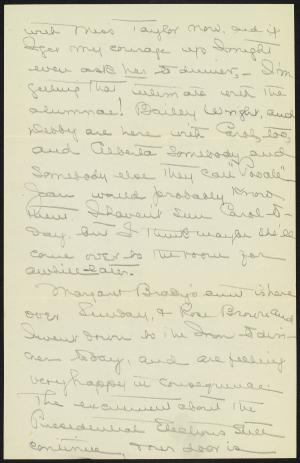 with Miss Taylor now, and if
I get my courage up tonight
even ask her to dinner, – I'm
getting that intimate with the
alumnae! Bailey Wright, and
Debby are here with Carol, too,
and Alberta Somebody and
Somebody else they call "Povale"
Jean would probably know
them. I haven't seen Carol to-
day, but I think maybe she'll
come over to the room for
awhile later.
Margaret Brady's aunt is here
over Sunday, & Rose Brown and
I went down to the Inn to din-
ner today, and are feeling
very happy in consequence.
The excitement about the
Presidential Elections still
continue, our door is